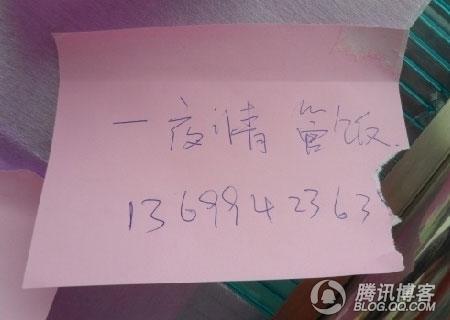 一夜请 管饭.
13699942363
腾讯博客
BLOG.QQ.COM